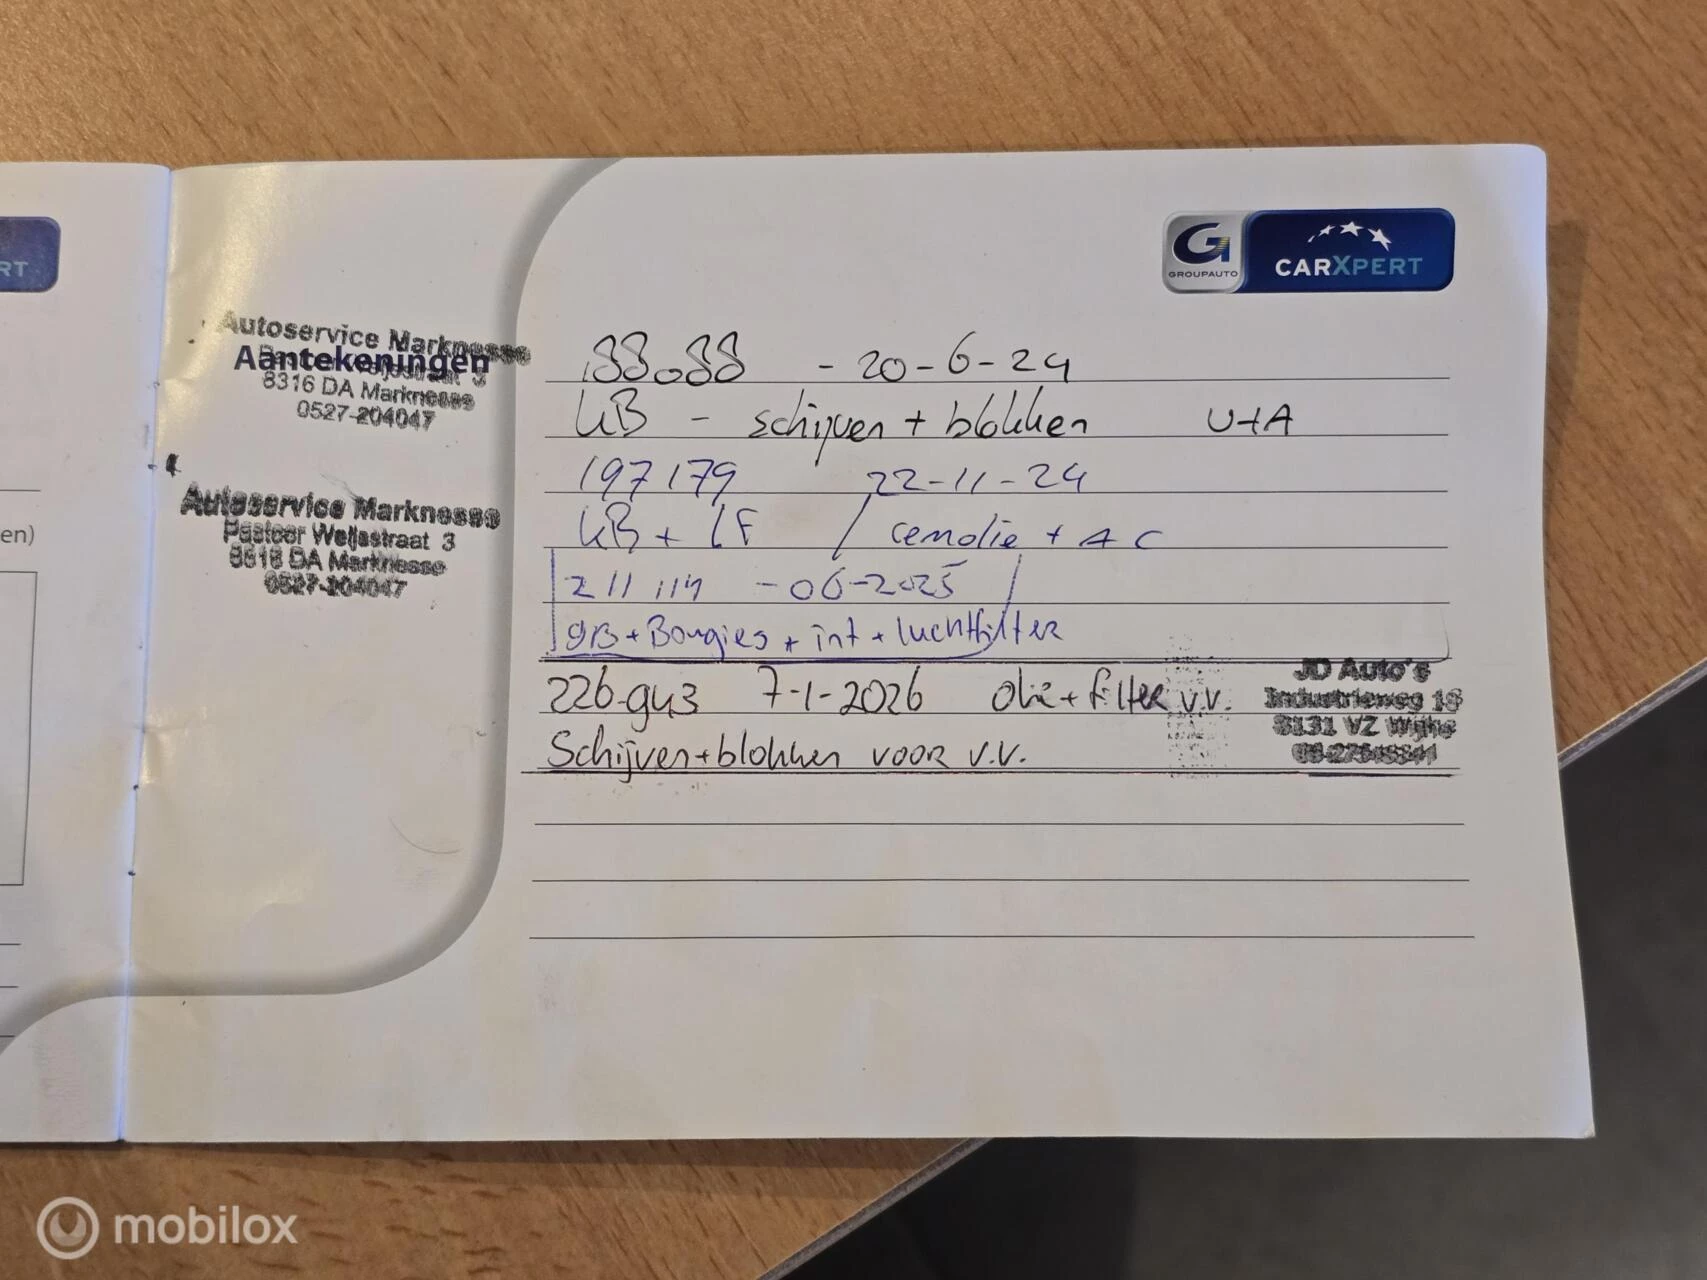 RT
en)
GROUPAUTO
CARXPERT
Autoservice Marknesse
Aantekeningen
8316 DA Marknesse
0527-204047
Autoservice Marknesse
Pastoor Weijsstraat 3
8316 DA Marknesse
0527-204047
188.088 - 20-6-24
KB - schijven + blokken V+A
197179 22-11-24
KB + LF / remolie + AC
211114 - 06-2025
gB + Bougies + int + luchtfilter
226.943 7-1-2026 Olie + filter v.v.
Schijven + blokken voor v.v.
JD Auto's
Industrieweg 18
8131 VZ Wijhe
mobilox